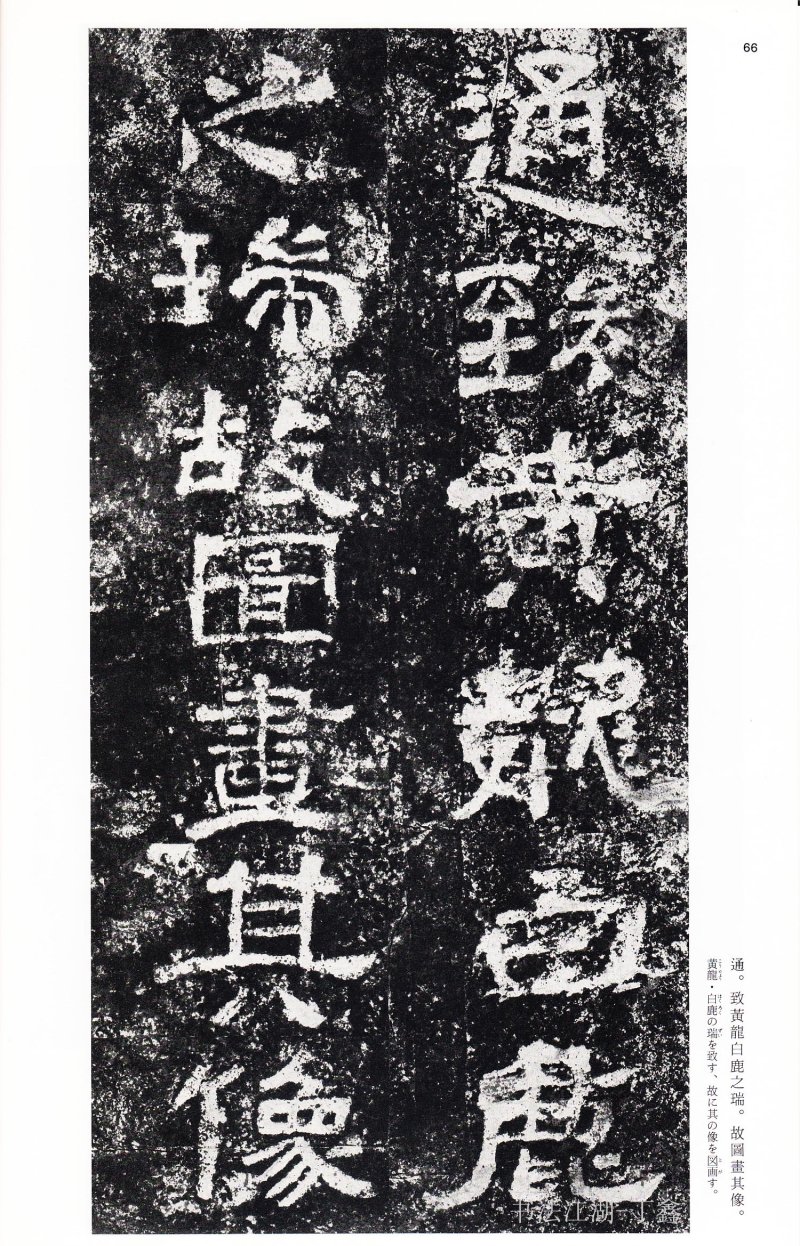 66
通致黃龍白鹿
之瑞故圖畫其像
通。致黃龍白鹿之瑞。故圖畫其像。
黄龍・白鹿の瑞を致す、故に其の像を図画す。
书法江湖 丁鑫